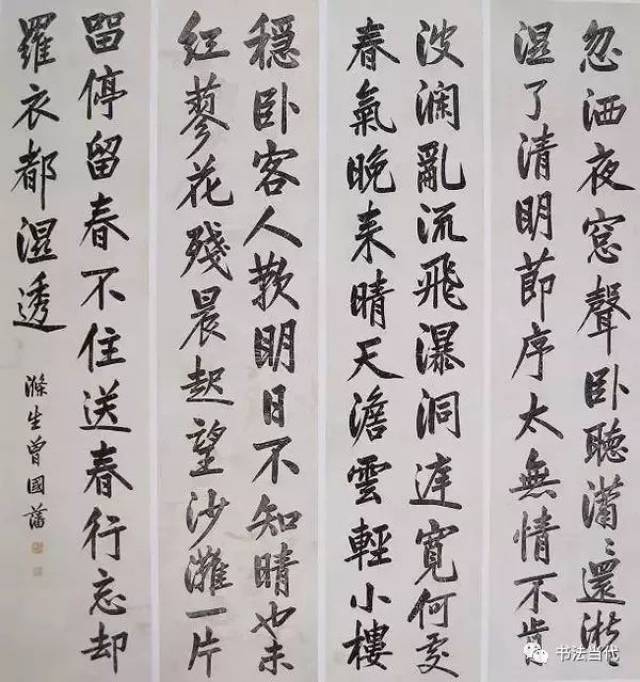 忽洒夜窓聲卧聽瀟〻還淅〻
湿了清明節序太無情不肯
波瀾亂流飛瀑洞庭寬何處
春氣晚来晴天澹雲輕小樓
穩卧客人歎明日不知晴也未
红蓼花殘晨起望沙灘一片
留停留春不住送春行忘却
羅衣都湿透
滌生曾國藩
书法当代